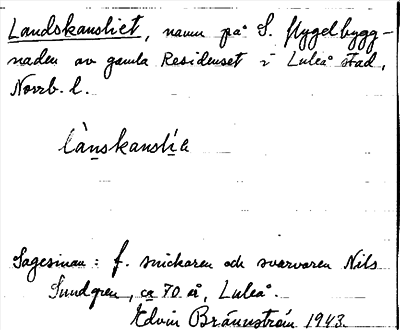 Landskansliet, namn på S. flygelbygg-
naden av gamla Residenset i Luleå stad,
Norrb. l.
lànskanslía
Sagesman: f. snickaren och svarvaren Nils
Sundgren, ca 70 år, Luleå.
Edvin Brännström 1943.